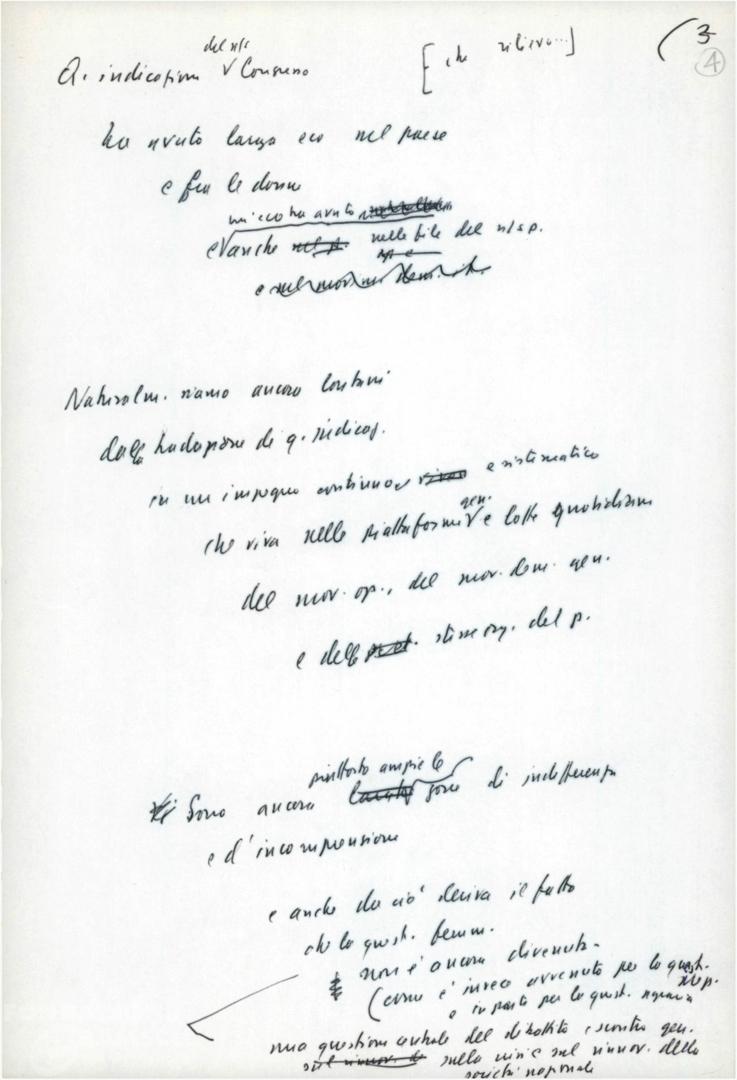 (3
4
del ns/
Q. indicazioni V Congresso [che rilievo...]
ha avuto larga eco nel paese
e fra le donne
un'eco ha avuto
e anche nel p. nelle file del ns/ p.
e nel mov. dem.
Naturalm. siamo ancora lontani
dalla traduzione di q. indicaz.
in un impegno continuo e sistematico
gen.
che viva nelle piattaforme V e lotte quotidiane
del mov. op., del mov. dem. gen.
e delle stesse org. del p.
piuttosto ampie le
Sono ancora zone di indifferenza
e d'incomprensione
e anche da ciò deriva il fatto
che la quest. femm.
non è ancora divenuta
(come è invece avvenuto per la quest.
e in parte per la quest. agraria
una questione centrale del dibattito e scontro gen.
sulla crisi e sul rinnov. della
società nazionale